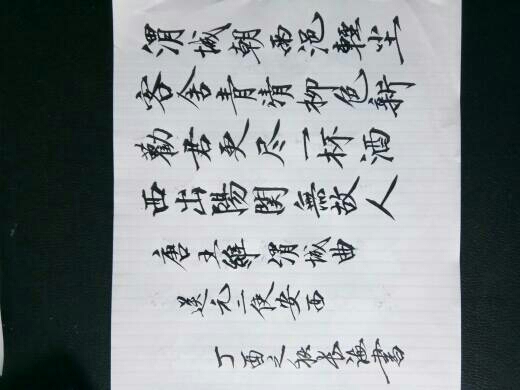 渭城朝雨浥輕尘
客舍青清柳色新
勸君更尽一杯酒
西出陽関無故人
唐王維渭城曲
送元二使安西
丁酉之秋書